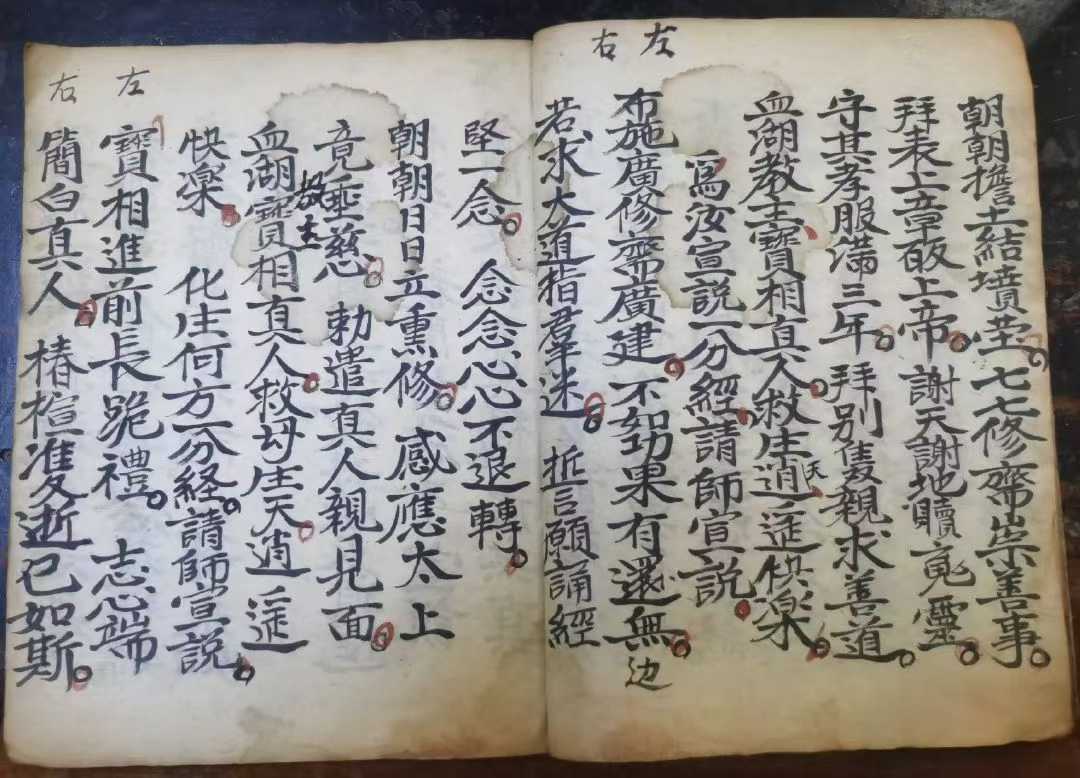 左
右
朝朝擔土結墳茔七七修齋崇善事
拜表上章啟上帝謝天謝地贖䰟靈
守其孝服满三年拜別隻親求善道
血湖教主寶相真人救生天逍遥快楽
為汝宣說一分經請師宣說
布施廣修齋廣建不如功果有還無边
若求大道指羣迷 拆言願誦經
左
右
堅一念 念念心心不退轉
朝朝日日立熏修 感應太上
竟垂慈 勅遣真人親見面
血湖教主寶相真人救母生天逍遥
快楽 化生何方一分経請師宣說
寶相進前長跪禮 志心端
簡白真人 椿楦準逝已如斯